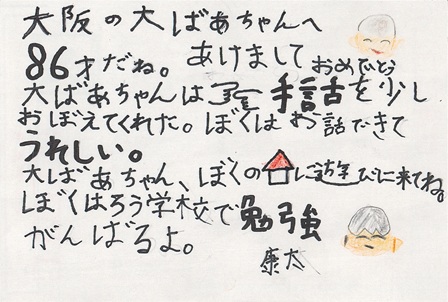 大阪の大ばあちゃんへ
あけまして
86才だね。 おめでとう
大ばあちゃんは 手話を少し
おぼえてくれた。ぼくは お話できて
うれしい。
大ばあちゃん、ぼくの に遊びに来てね。
ぼくはろう学校で勉強
がんばるよ。
康太